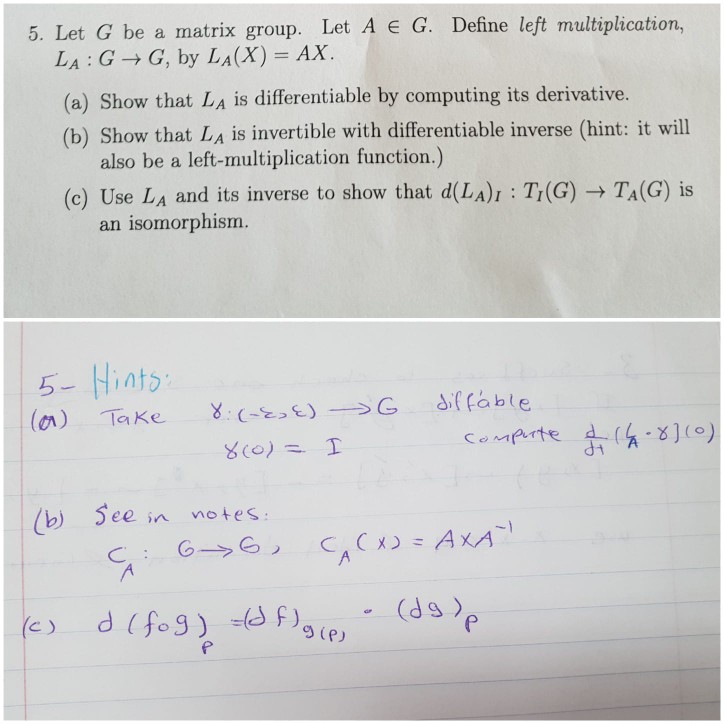 5. Let G be a matrix group. Let A ∈ G. Define left multiplication,
L_A : G → G, by L_A(X) = AX.
(a) Show that L_A is differentiable by computing its derivative.
(b) Show that L_A is invertible with differentiable inverse (hint: it will
also be a left-multiplication function.)
(c) Use L_A and its inverse to show that d(L_A)_I : T_I(G) → T_A(G) is
an isomorphism.
5- Hints:
(a) Take γ: (-ε, ε) → G diffable
γ(0) = I compute d/dt (L_A ∘ γ](0)
(b) See in notes:
C_A : G → G, C_A(X) = AXA^-1
(c) d(fog)_p = (df)_g(p) ∘ (dg)_p